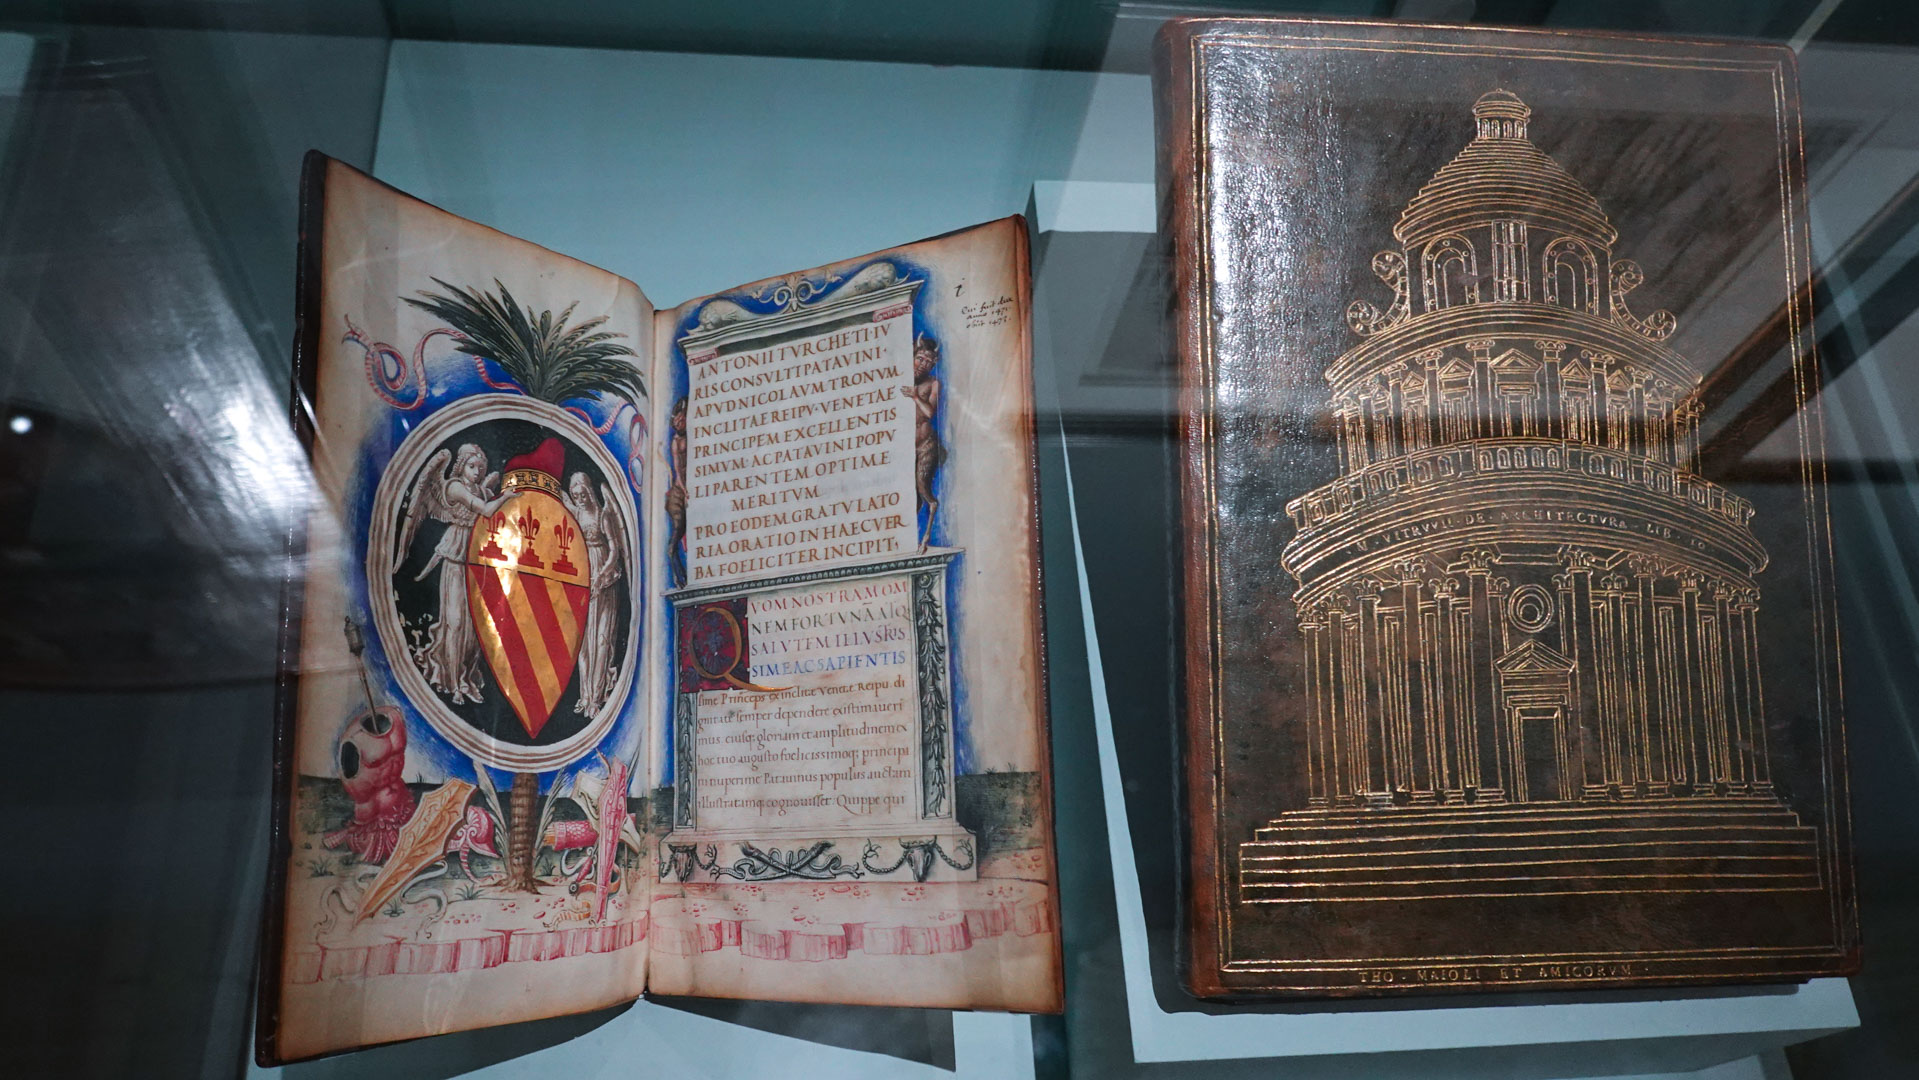 ANTONII TVRCHETI·IV
RISCONSVLTI PATAVINI·
APVD NICOLAVM TRONVM
INCLITAE REIPV· VENETAE
PRINCIPEM EXCELLENTIS
SIMVM· AC PATAVINI POPV
LI PARENTEM OPTIME
MERITVM
PRO EODEM GRATVLATO
RIA ORATIO IN HAEC VER
BA FOELICITER INCIPIT·
QVOM NOSTRAM OM
NEM FORTVNÃ
SALVTEM ILLVSTRIS
SIME AC SAPIENTIS
sime Princeps ex inclitae Venetae Reipu. di
gnitate semper dependere existimaueri
mus. eiusq; gloriam et amplitudinem ex
hoc tuo augusto foelicissimoq; principa
Patauinus populus auctam
illustratamq; cognouisset. Quippe qui
M· VITRVVII· DE· ARCHITECTVRA· LIB· 10
THO· MAIOLI ET AMICORVM·